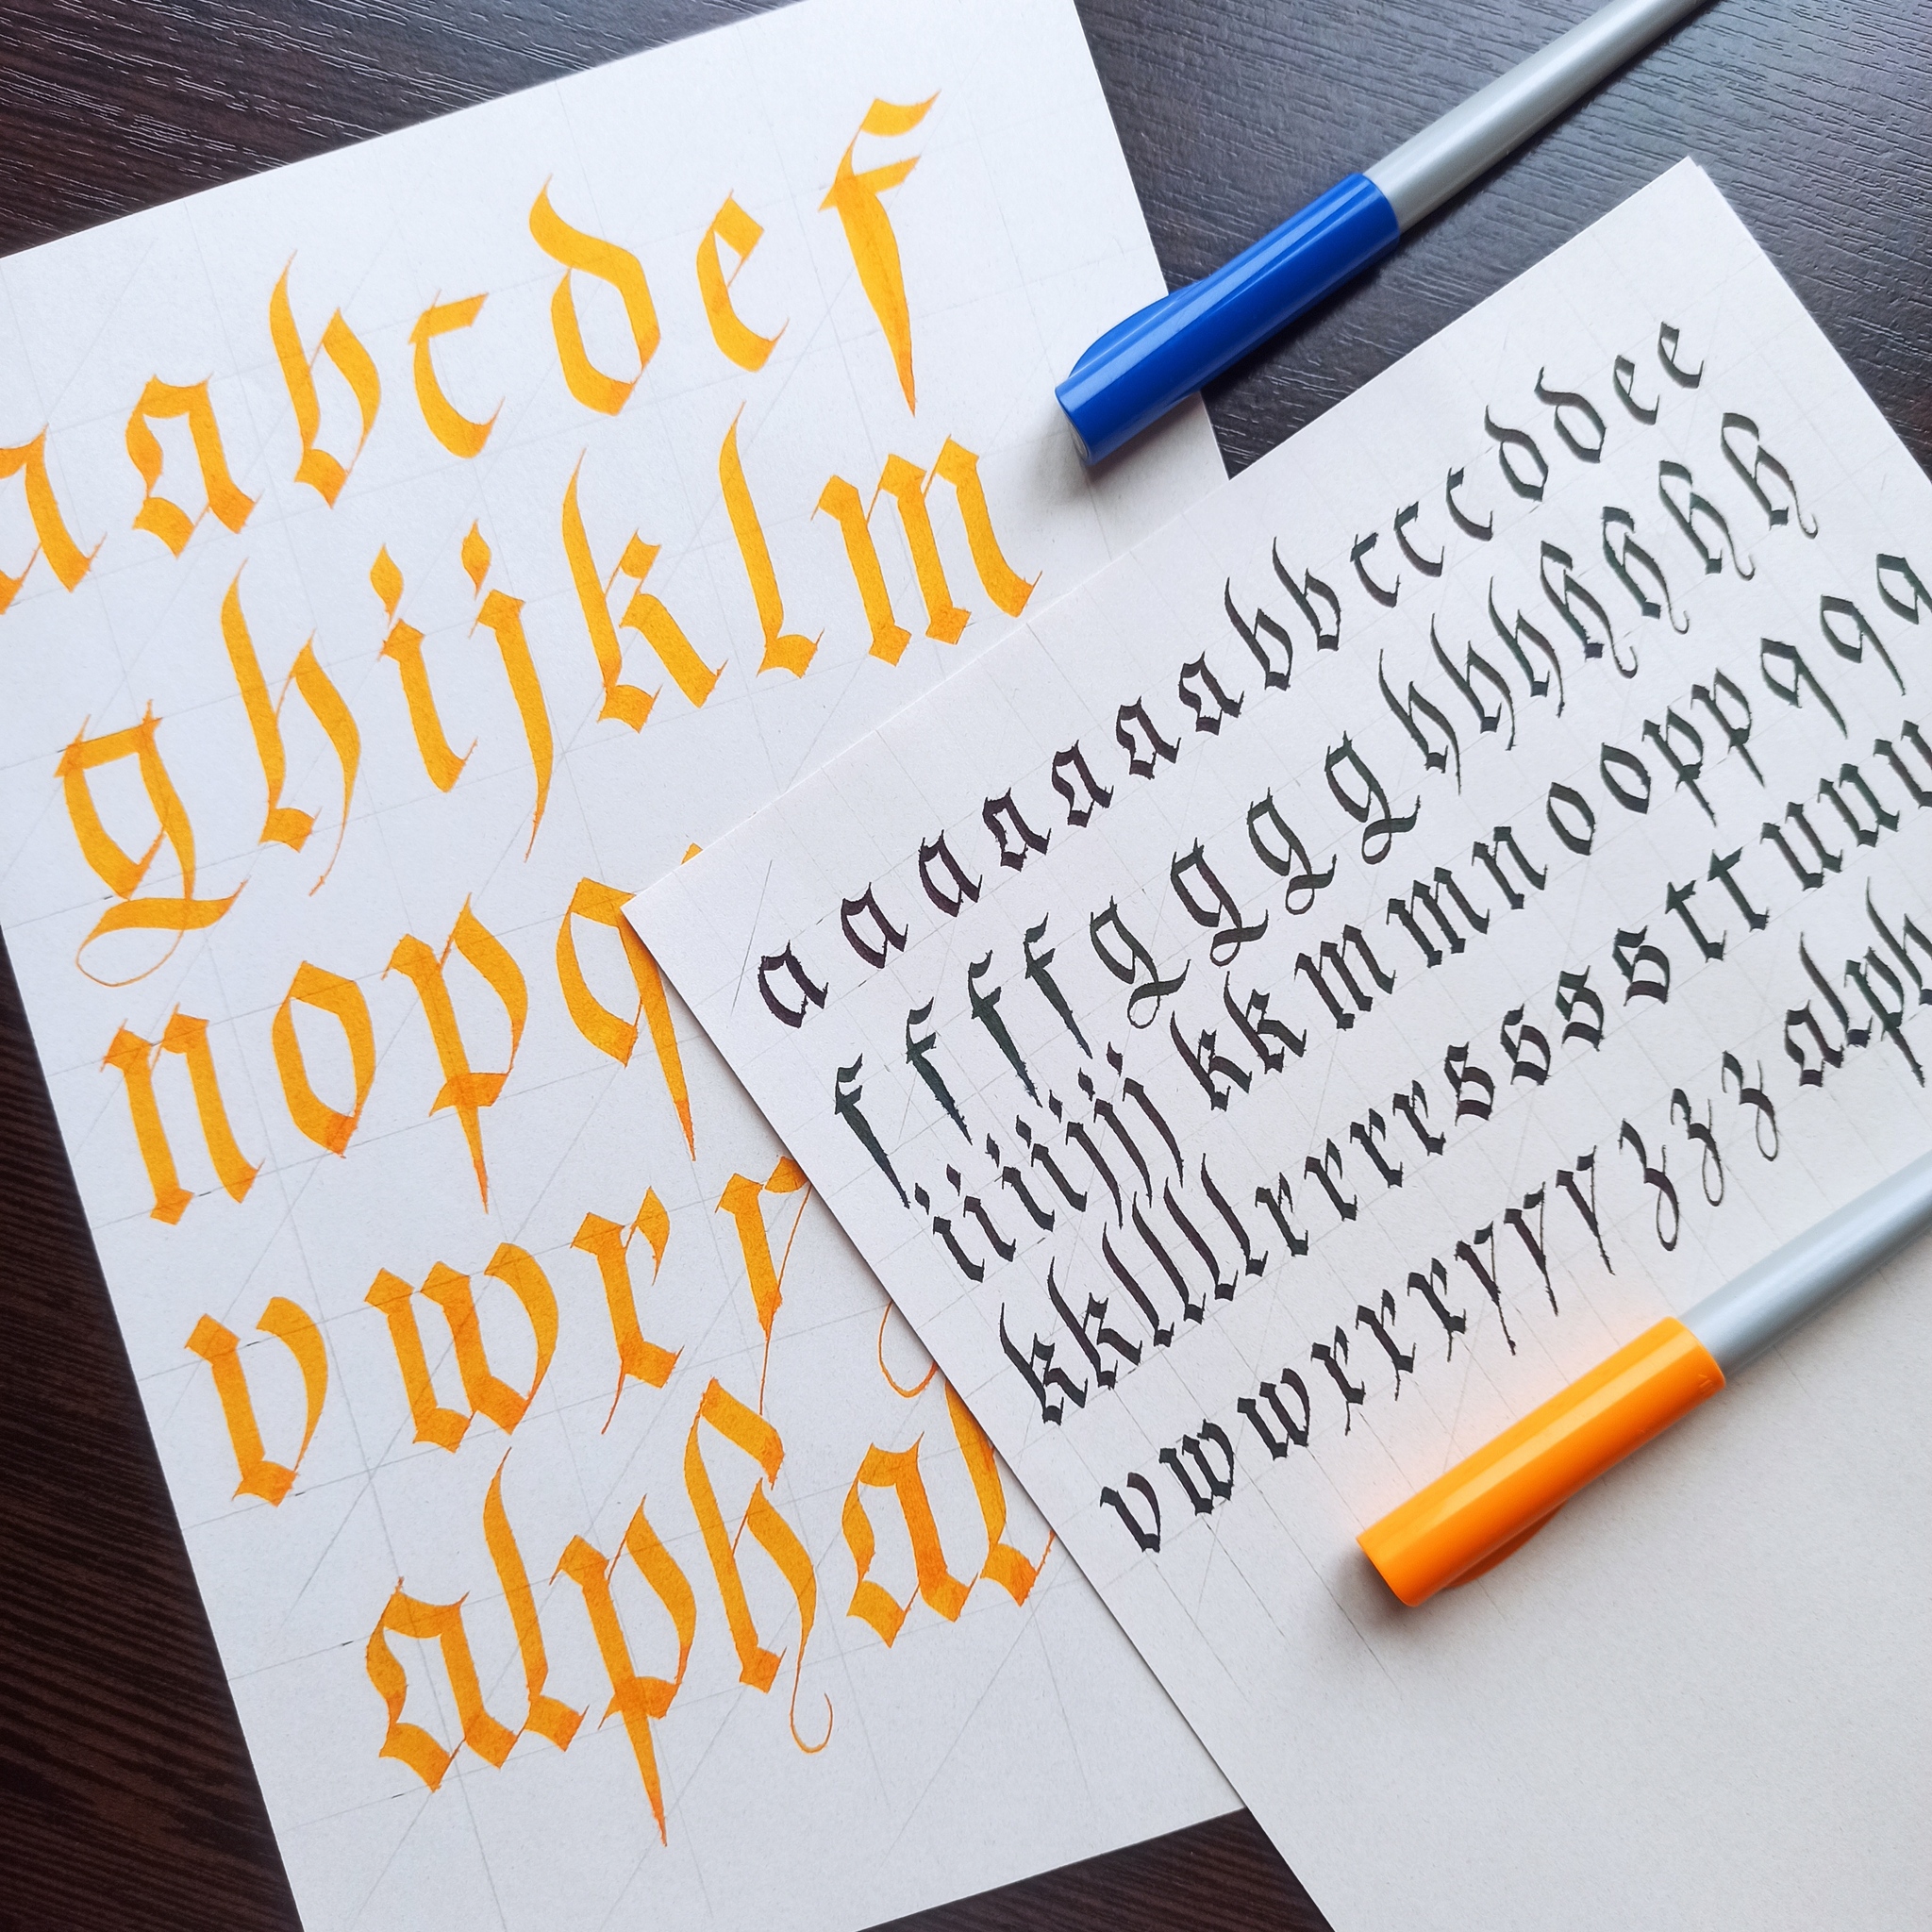 a a b c d e f
g h i j k l m
n o p q
v w x y
alpha
a a a a a a a b b c c c d d e e
f f f f g g g g h h h h h h h
i i i i j j j k k m m n o o p p q q q
k k l l l l r r r r s s s s t t u u u
v w w x x x y y y z z z alph